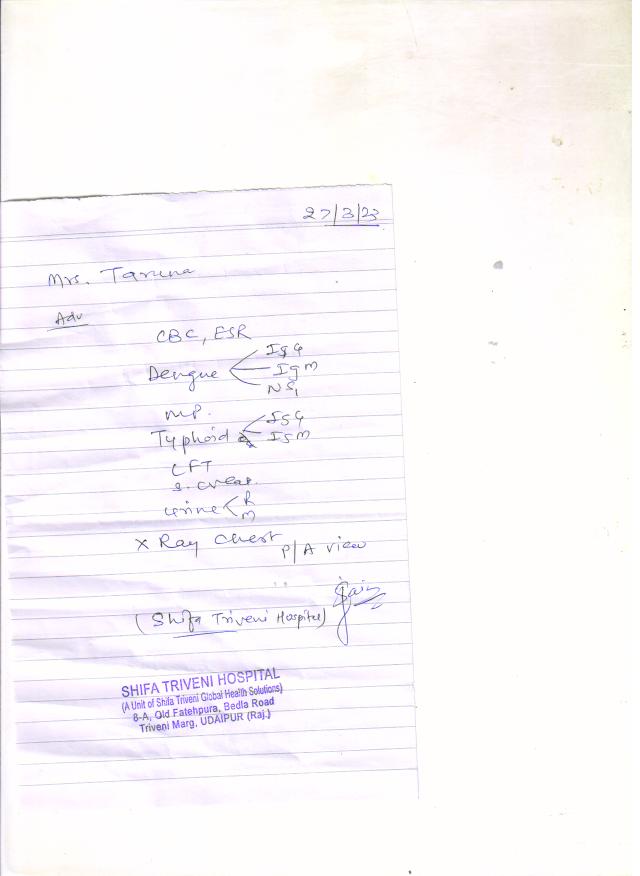 27/3/23
Mrs. Taruna
Adv
CBC, ESR
Dengue IgG
IgM
NS1
MP.
Typhoid IgG
IgM
LFT
S. creat.
Urine R
M
X Ray Chest P/A view
(Shifa Triveni Hospital)
SHIFA TRIVENI HOSPITAL
(A Unit of Shifa Triveni Global Health Solutions)
8-A, Old Fatehpura, Bedla Road
Triveni Marg, UDAIPUR (Raj.)